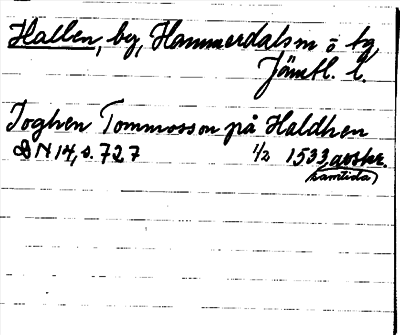 Hallen, by, Hammerdals sn o tg
Jämtl. l.
Joghen Tommosson på Haldhen
DN 14, s. 727 1/2 1533, avskr.
(samtida)